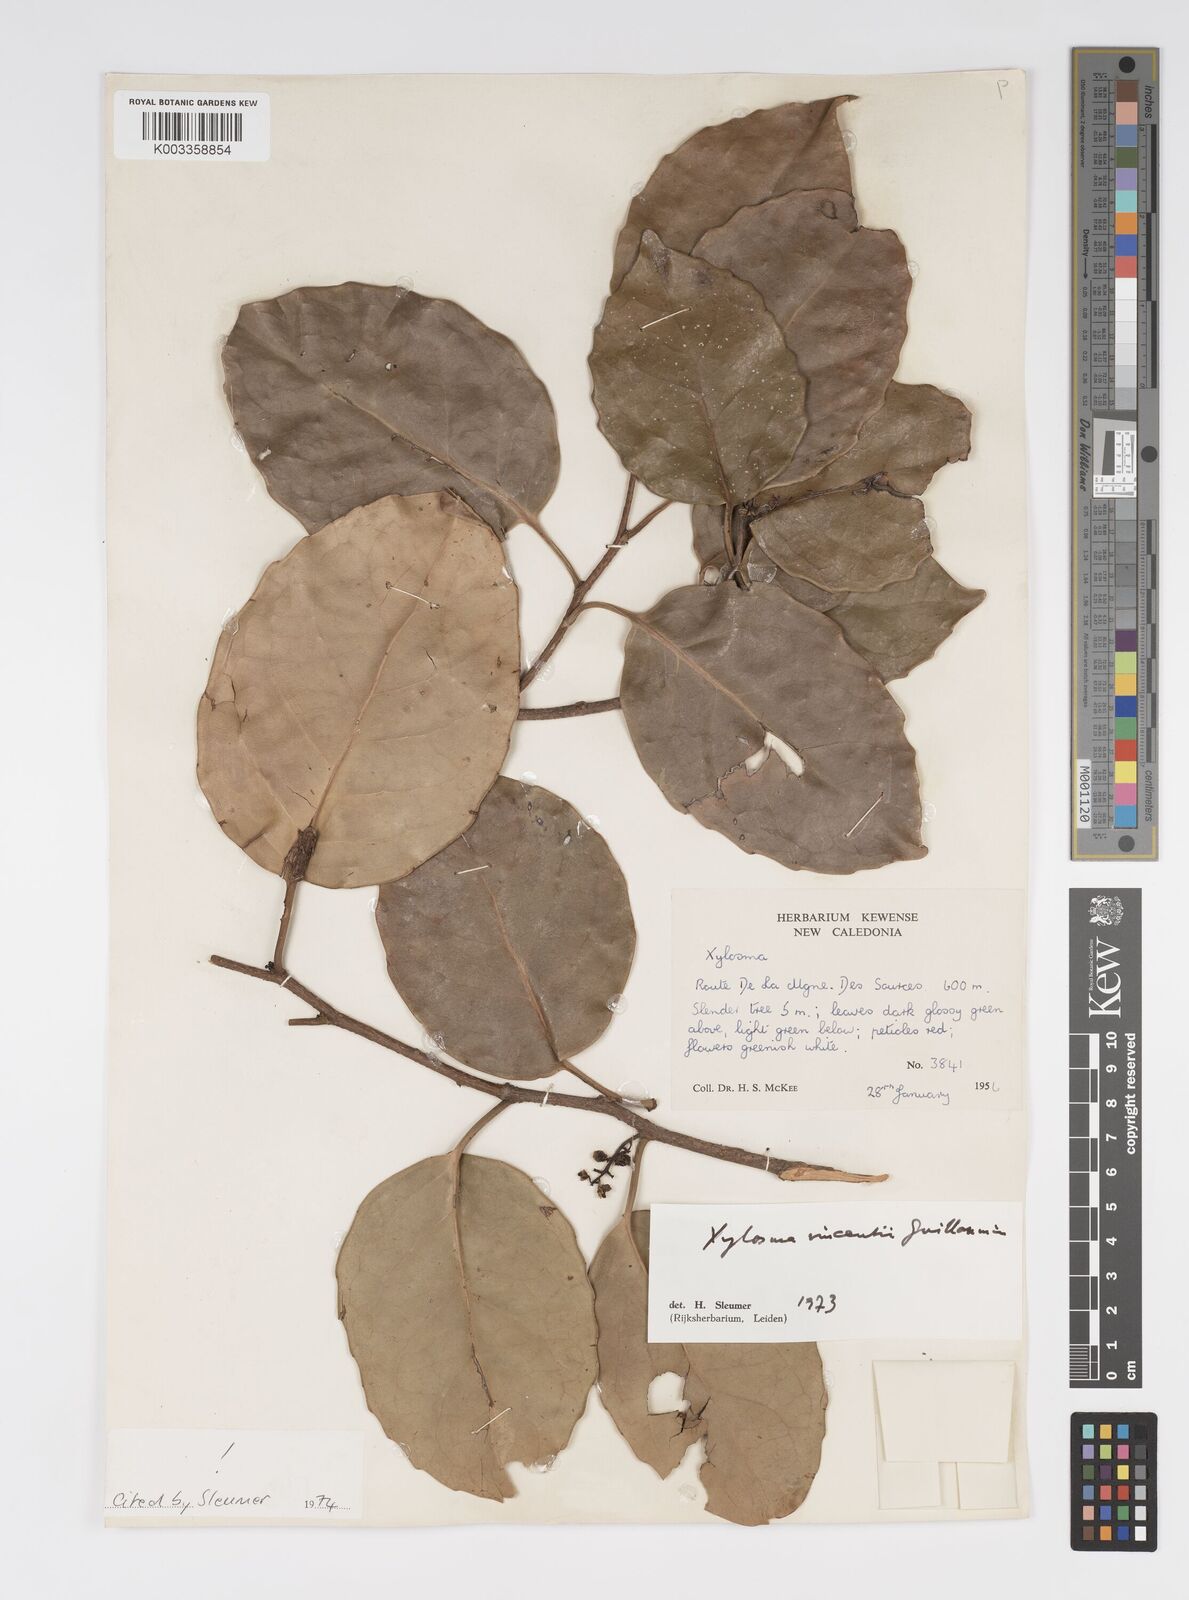 ROYAL BOTANIC GARDENS KEW
K003358854
P
HERBARIUM KEWENSE
NEW CALEDONIA
Xylosma
Route De La Mgne. Des Sources. 600 m.
Slender tree 5 m.; leaves dark glossy green
above, light green below; petioles red;
flowers greenish white.
No. 3841
Coll. Dr. H. S. McKee
28th January 1956
Xylosma vincentii Guillaumin
det. H. Sleumer 1973
(Rijksherbarium, Leiden)
!
Cited by Sleumer 1974
inches
Density
Don Williams
M001120
centimeters
Kew
0 1 2 3 4 5 6 7 8 9 10
cm
copyright reserved